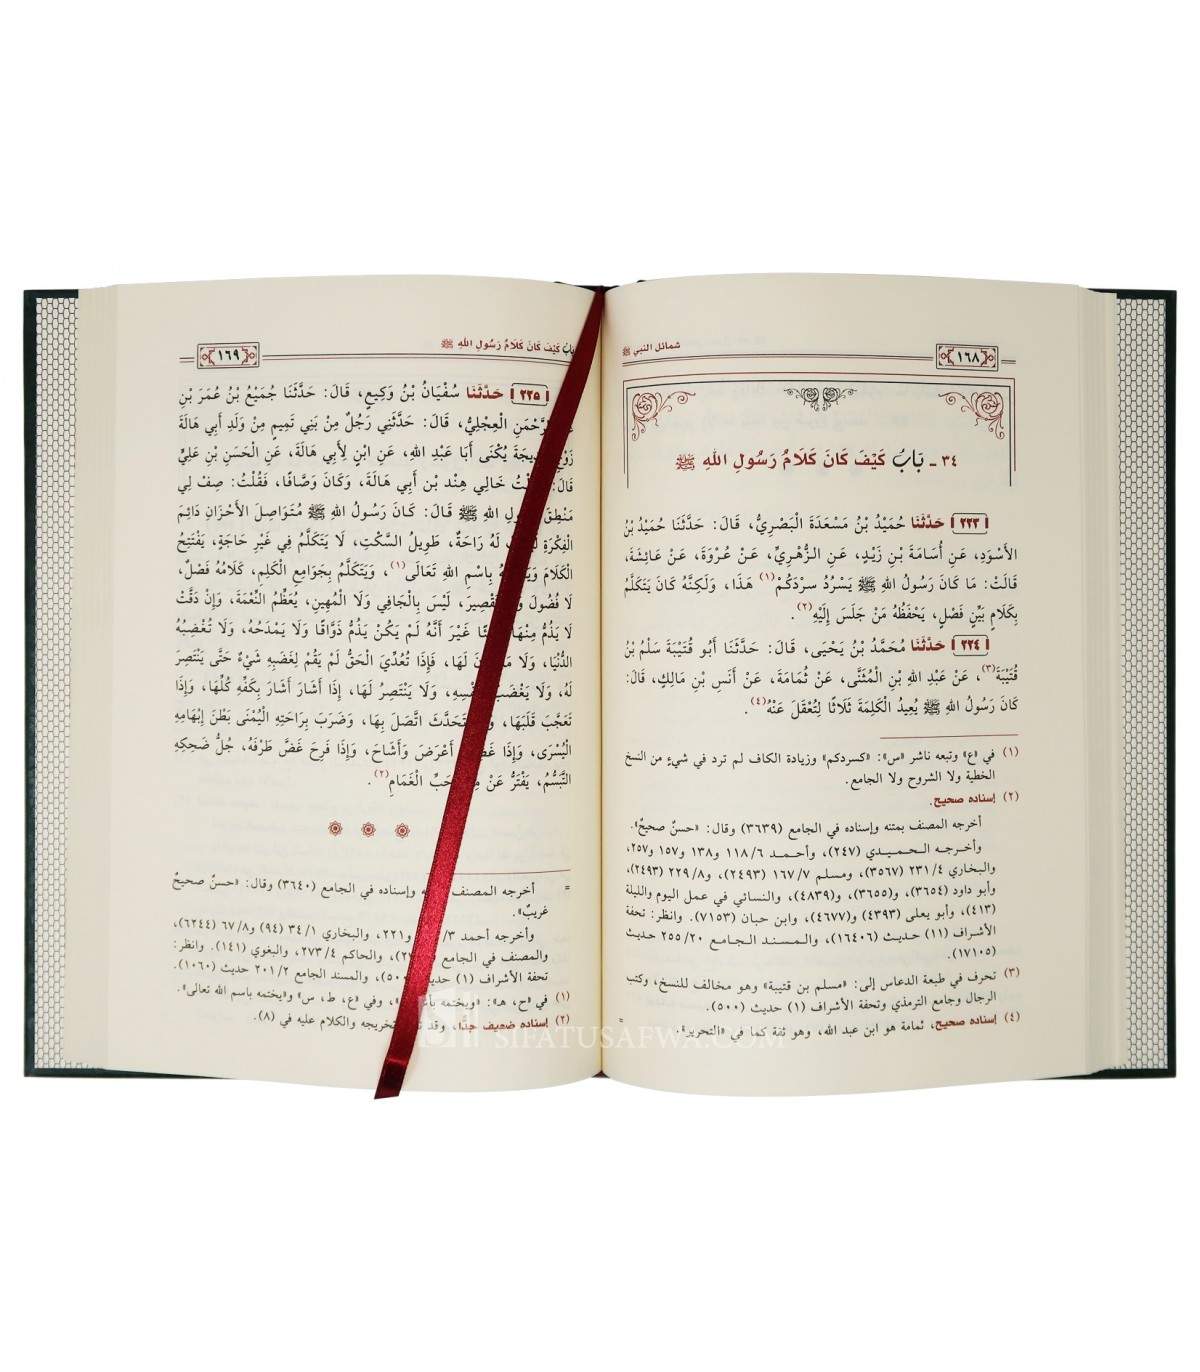 ١٦٨
شمائل النبي ﷺ
٣٤ ـ بَابُ كَيْفَ كَانَ كَلَامُ رَسُولِ اللهِ ﷺ
٢٢٣ حَدَّثَنَا حُمَيْدُ بْنُ مَسْعَدَةَ الْبَصْرِيُّ، قَالَ: حَدَّثَنَا حُمَيْدُ بْنُ
الأَسْوَدِ، عَنِ أُسَامَةَ بْنِ زَيْدٍ، عَنِ الزُّهْرِيِّ، عَنْ عُرْوَةَ، عَنْ عَائِشَةَ،
قَالَتْ: مَا كَانَ رَسُولُ اللهِ ﷺ يَسْرُدُ سرْدَكُمْ(١) هَذَا، وَلَكِنَّهُ كَانَ يَتَكَلَّمُ
بِكَلَامٍ بَيِّنٍ فَصْلٍ، يَحْفَظُهُ مَنْ جَلَسَ إِلَيْهِ(٢).
٢٢٤ حَدَّثَنَا مُحَمَّدُ بْنُ يَحْيَى، قَالَ: حَدَّثَنَا أَبُو قُتَيْبَةَ سَلْمُ بْنُ
قُتَيْبَةَ(٣)، عَنْ عَبْدِ اللهِ بْنِ الْمُثَنَّى، عَنْ ثُمَامَةَ، عَنْ أَنَسِ بْنِ مَالِكٍ، قَالَ:
كَانَ رَسُولُ اللهِ ﷺ يُعِيدُ الْكَلِمَةَ ثَلَاثًا لِتُعْقَلَ عَنْهُ(٤).
(١) في «ع» وتبعه ناشر «س»: «كسردكم» وزيادة الكاف لم ترد في شيءٍ من النسخ
الخطية ولا الشروح ولا الجامع.
(٢) إسناده صحيح.
أخرجه المصنف بمتنه وإسناده في الجامع (٣٦٣٩) وقال: «حسنٌ صحيحٌ».
وأخرجه الحميدي (٢٤٧)، وأحمد ٦/ ١١٨ و١٣٨ و١٥٧ و٢٥٧،
والبخاري ٤/ ٢٣١ (٣٥٦٧)، ومسلم ٧/ ١٦٧ (٢٤٩٣)، و٨/ ٢٢٩ (٢٤٩٣)،
وأبو داود (٣٦٥٤)، و(٣٦٥٥)، و(٤٨٣٩)، والنسائي في عمل اليوم والليلة
(٤١٣)، وأبو يعلى (٤٣٩٣) و(٤٦٧٧)، وابن حبان (٧١٥٣). وانظر: تحفة
الأشراف (١١) حديث (١٦٤٠٦)، والمسند الجامع ٢٠/ ٢٥٥ حديث
(١٧١٠٥).
(٣) تحرف في طبعة الدعاس إلى: «مسلم بن قتيبة» وهو مخالف للنسخ، وكتب
الرجال وجامع الترمذي وتحفة الأشراف (١) حديث (٥٠٠).
(٤) إسناده صحيح، ثمامة هو ابن عبد الله، وهو ثقة كما في «التحرير».  =
بَابُ كَيْفَ كَانَ كَلَامُ رَسُولِ اللهِ ﷺ
١٦٩
٢٢٥ حَدَّثَنَا سُفْيَانُ بْنُ وَكِيعٍ، قَالَ: حَدَّثَنَا جُمَيْعُ بْنُ عُمَرَ بْنِ
الرَّحْمَنِ الْعِجْلِيُّ، قَالَ: حَدَّثَنِي رَجُلٌ مِنْ بَنِي تَمِيمٍ مِنْ وَلَدِ أَبِي هَالَةَ
زَوْجِ يُكْنَى أَبَا عَبْدِ اللهِ، عَنِ ابْنٍ لِأَبِي هَالَةَ، عَنِ الْحَسَنِ بْنِ عَلِيٍّ
قَالَ: خَالِي هِنْد بْن أَبِي هَالَةَ، وَكَانَ وَصَّافًا، فَقُلْتُ: صِفْ لِي
مَنْطِقَ اللهِ ﷺ قَالَ: كَانَ رَسُولُ اللهِ ﷺ مُتَوَاصِلَ الأَحْزَانِ دَائِمَ
الْفِكْرَةِ لَهُ رَاحَةٌ، طَوِيلُ السَّكْتِ، لَا يَتَكَلَّمُ فِي غَيْرِ حَاجَةٍ، يَفْتَتِحُ
الْكَلَامَ بِاسْمِ اللهِ تَعَالَى(١)، وَيَتَكَلَّمُ بِجَوَامِعِ الْكَلِمِ، كَلَامُهُ فَصْلٌ،
لَا فُضُولَ تَقْصِيرَ، لَيْسَ بِالْجَافِي وَلَا الْمُهِينِ، يُعَظِّمُ النِّعْمَةَ، وَإِنْ دَقَّتْ
لَا يَذُمُّ مِنْهَا غَيْرَ أَنَّهُ لَمْ يَكُنْ يَذُمُّ ذَوَّاقًا وَلَا يَمْدَحُهُ، وَلَا تُغْضِبُهُ
الدُّنْيَا، وَلَا لَهَا، فَإِذَا تُعُدِّيَ الْحَقُّ لَمْ يَقُمْ لِغَضَبِهِ شَيْءٌ حَتَّى يَنْتَصِرَ
لَهُ، وَلَا يَغْضَبُ وَلَا يَنْتَصِرُ لَهَا، إِذَا أَشَارَ أَشَارَ بِكَفِّهِ كُلِّهَا، وَإِذَا
تَعَجَّبَ قَلَبَهَا، تَحَدَّثَ اتَّصَلَ بِهَا، وَضَرَبَ بِرَاحَتِهِ الْيُمْنَى بَطْنَ إِبْهَامِهِ
الْيُسْرَى، وَإِذَا أَعْرَضَ وَأَشَاحَ، وَإِذَا فَرِحَ غَضَّ طَرْفَهُ، جُلُّ ضَحِكِهِ
التَّبَسُّمُ، يَفْتَرُّ عَنْ حَبِّ الْغَمَامِ(٢).
= أخرجه المصنف وإسناده في الجامع (٣٦٤٠) وقال: «حسنٌ صحيحٌ
غريبٌ».
وأخرجه أحمد ٣/ و٢٢١، والبخاري ١/ ٣٤ (٩٤) و٨/ ٦٧ (٦٢٤٤)،
والمصنف في الجامع والحاكم ٤/ ٢٧٣، والبغوي (١٤١). وانظر:
تحفة الأشراف (١) حديث والمسند الجامع ٢/ ٢٠١ حديث (١٠٦٠).
(١) في «ح، هـ»: «ويختمه وفي «ع، ط، س» و«يختمه باسم الله تعالى».
(٢) إسناده ضعيف جدًّا، وقد تخريجه والكلام عليه في (٨).
SIFATUSAFWA.COM